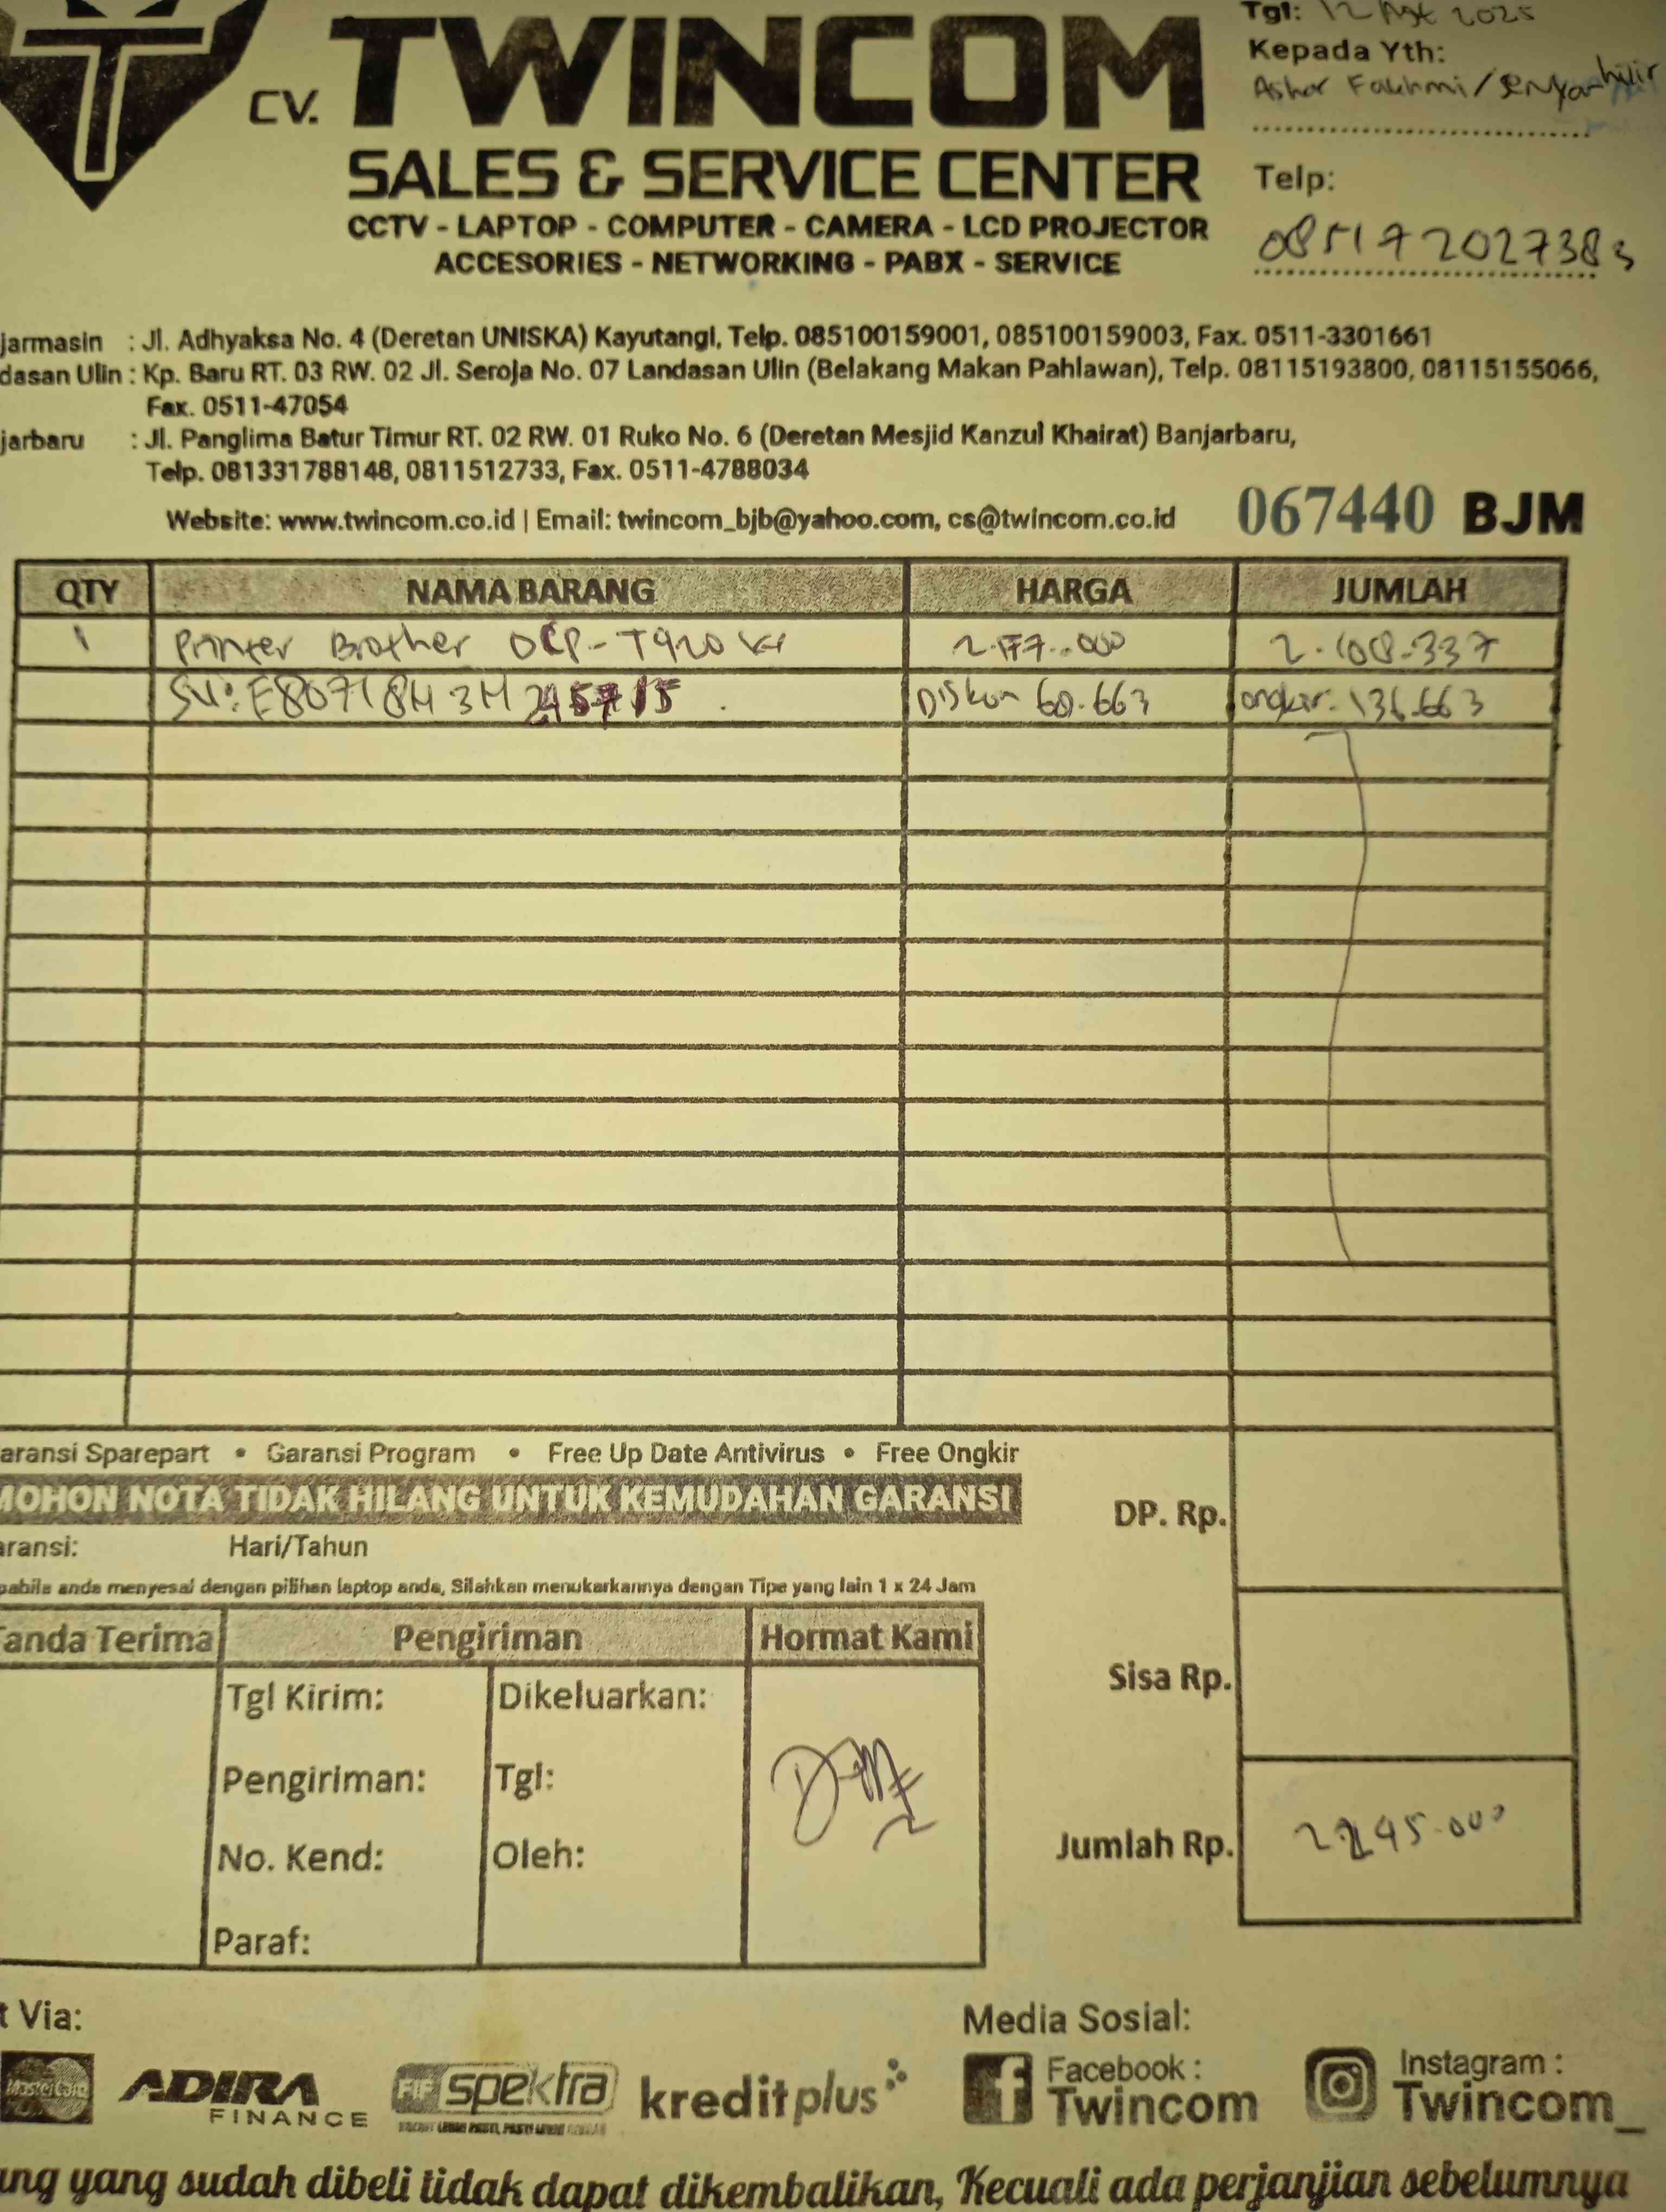 CV. TWINCOM
SALES & SERVICE CENTER
CCTV - LAPTOP - COMPUTER - CAMERA - LCD PROJECTOR
ACCESORIES - NETWORKING - PABX - SERVICE
Tgl: 12 Agt 2025
Kepada Yth:
Ashar Fakhmi / hilir
Telp:
085172027383
jarmasin : Jl. Adhyaksa No. 4 (Deretan UNISKA) Kayutangi, Telp. 085100159001, 085100159003, Fax. 0511-3301661
dasan Ulin : Kp. Baru RT. 03 RW. 02 Jl. Seroja No. 07 Landasan Ulin (Belakang Makan Pahlawan), Telp. 08115193800, 08115155066,
Fax. 0511-47054
jarbaru : Jl. Panglima Batur Timur RT. 02 RW. 01 Ruko No. 6 (Deretan Mesjid Kanzul Khairat) Banjarbaru,
Telp. 081331788148, 0811512733, Fax. 0511-4788034
Website: www.twincom.co.id | Email: twincom_bjb@yahoo.com, cs@twincom.co.id
067440 BJM
QTY NAMA BARANG HARGA JUMLAH
1 Printer Brother DCP-T920 2.177.000 2.108.337
SN: E80718H3H245715 Diskon 68.663 ongkir. 136.663
aransi Sparepart • Garansi Program • Free Up Date Antivirus • Free Ongkir
MOHON NOTA TIDAK HILANG UNTUK KEMUDAHAN GARANSI
aransi: Hari/Tahun
pabila anda menyesal dengan pilihan laptop anda, Silahkan menukarkannya dengan Tipe yang lain 1 x 24 Jam
DP. Rp.
Sisa Rp.
Jumlah Rp. 2.245.000
Tanda Terima Pengiriman Hormat Kami
Tgl Kirim: Dikeluarkan:
Pengiriman: Tgl:
No. Kend: Oleh:
Paraf:
t Via:
MasterCard
ADIRA FINANCE
FIF spektra
kreditplus
Media Sosial:
Facebook :
Twincom
Instagram :
Twincom_
ang yang sudah dibeli tidak dapat dikembalikan, Kecuali ada perjanjian sebelumnya